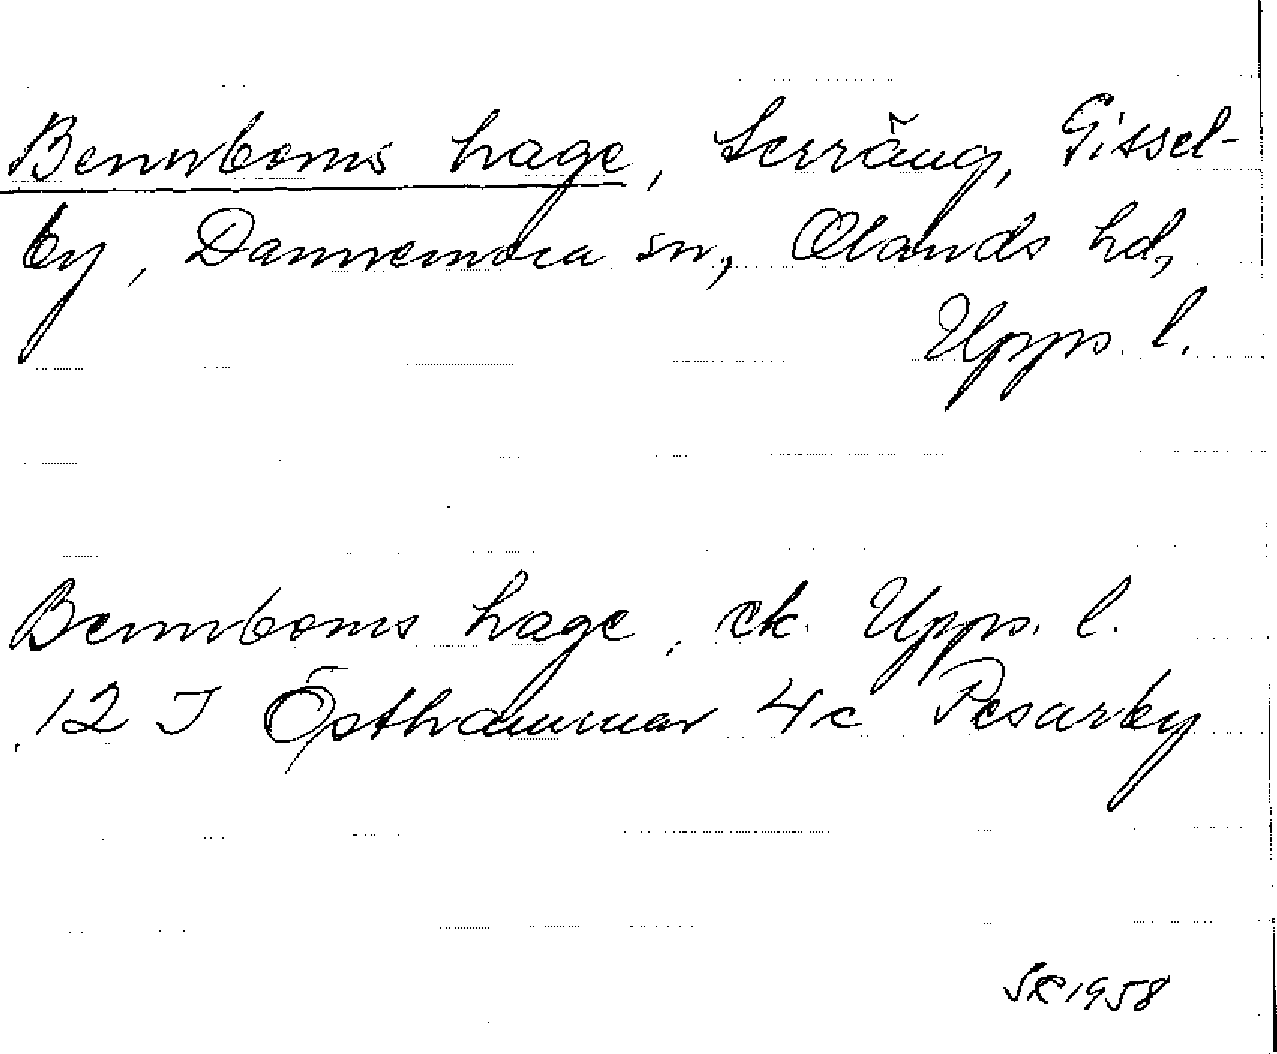 Bennboms hage, Lerräng, Gissel-
by, Dannemora sn, Olands hd,
Upps. l.
Bennboms hage, ek. Upps. l.
12 I Östhammar 4c Pesarby
SR 1958